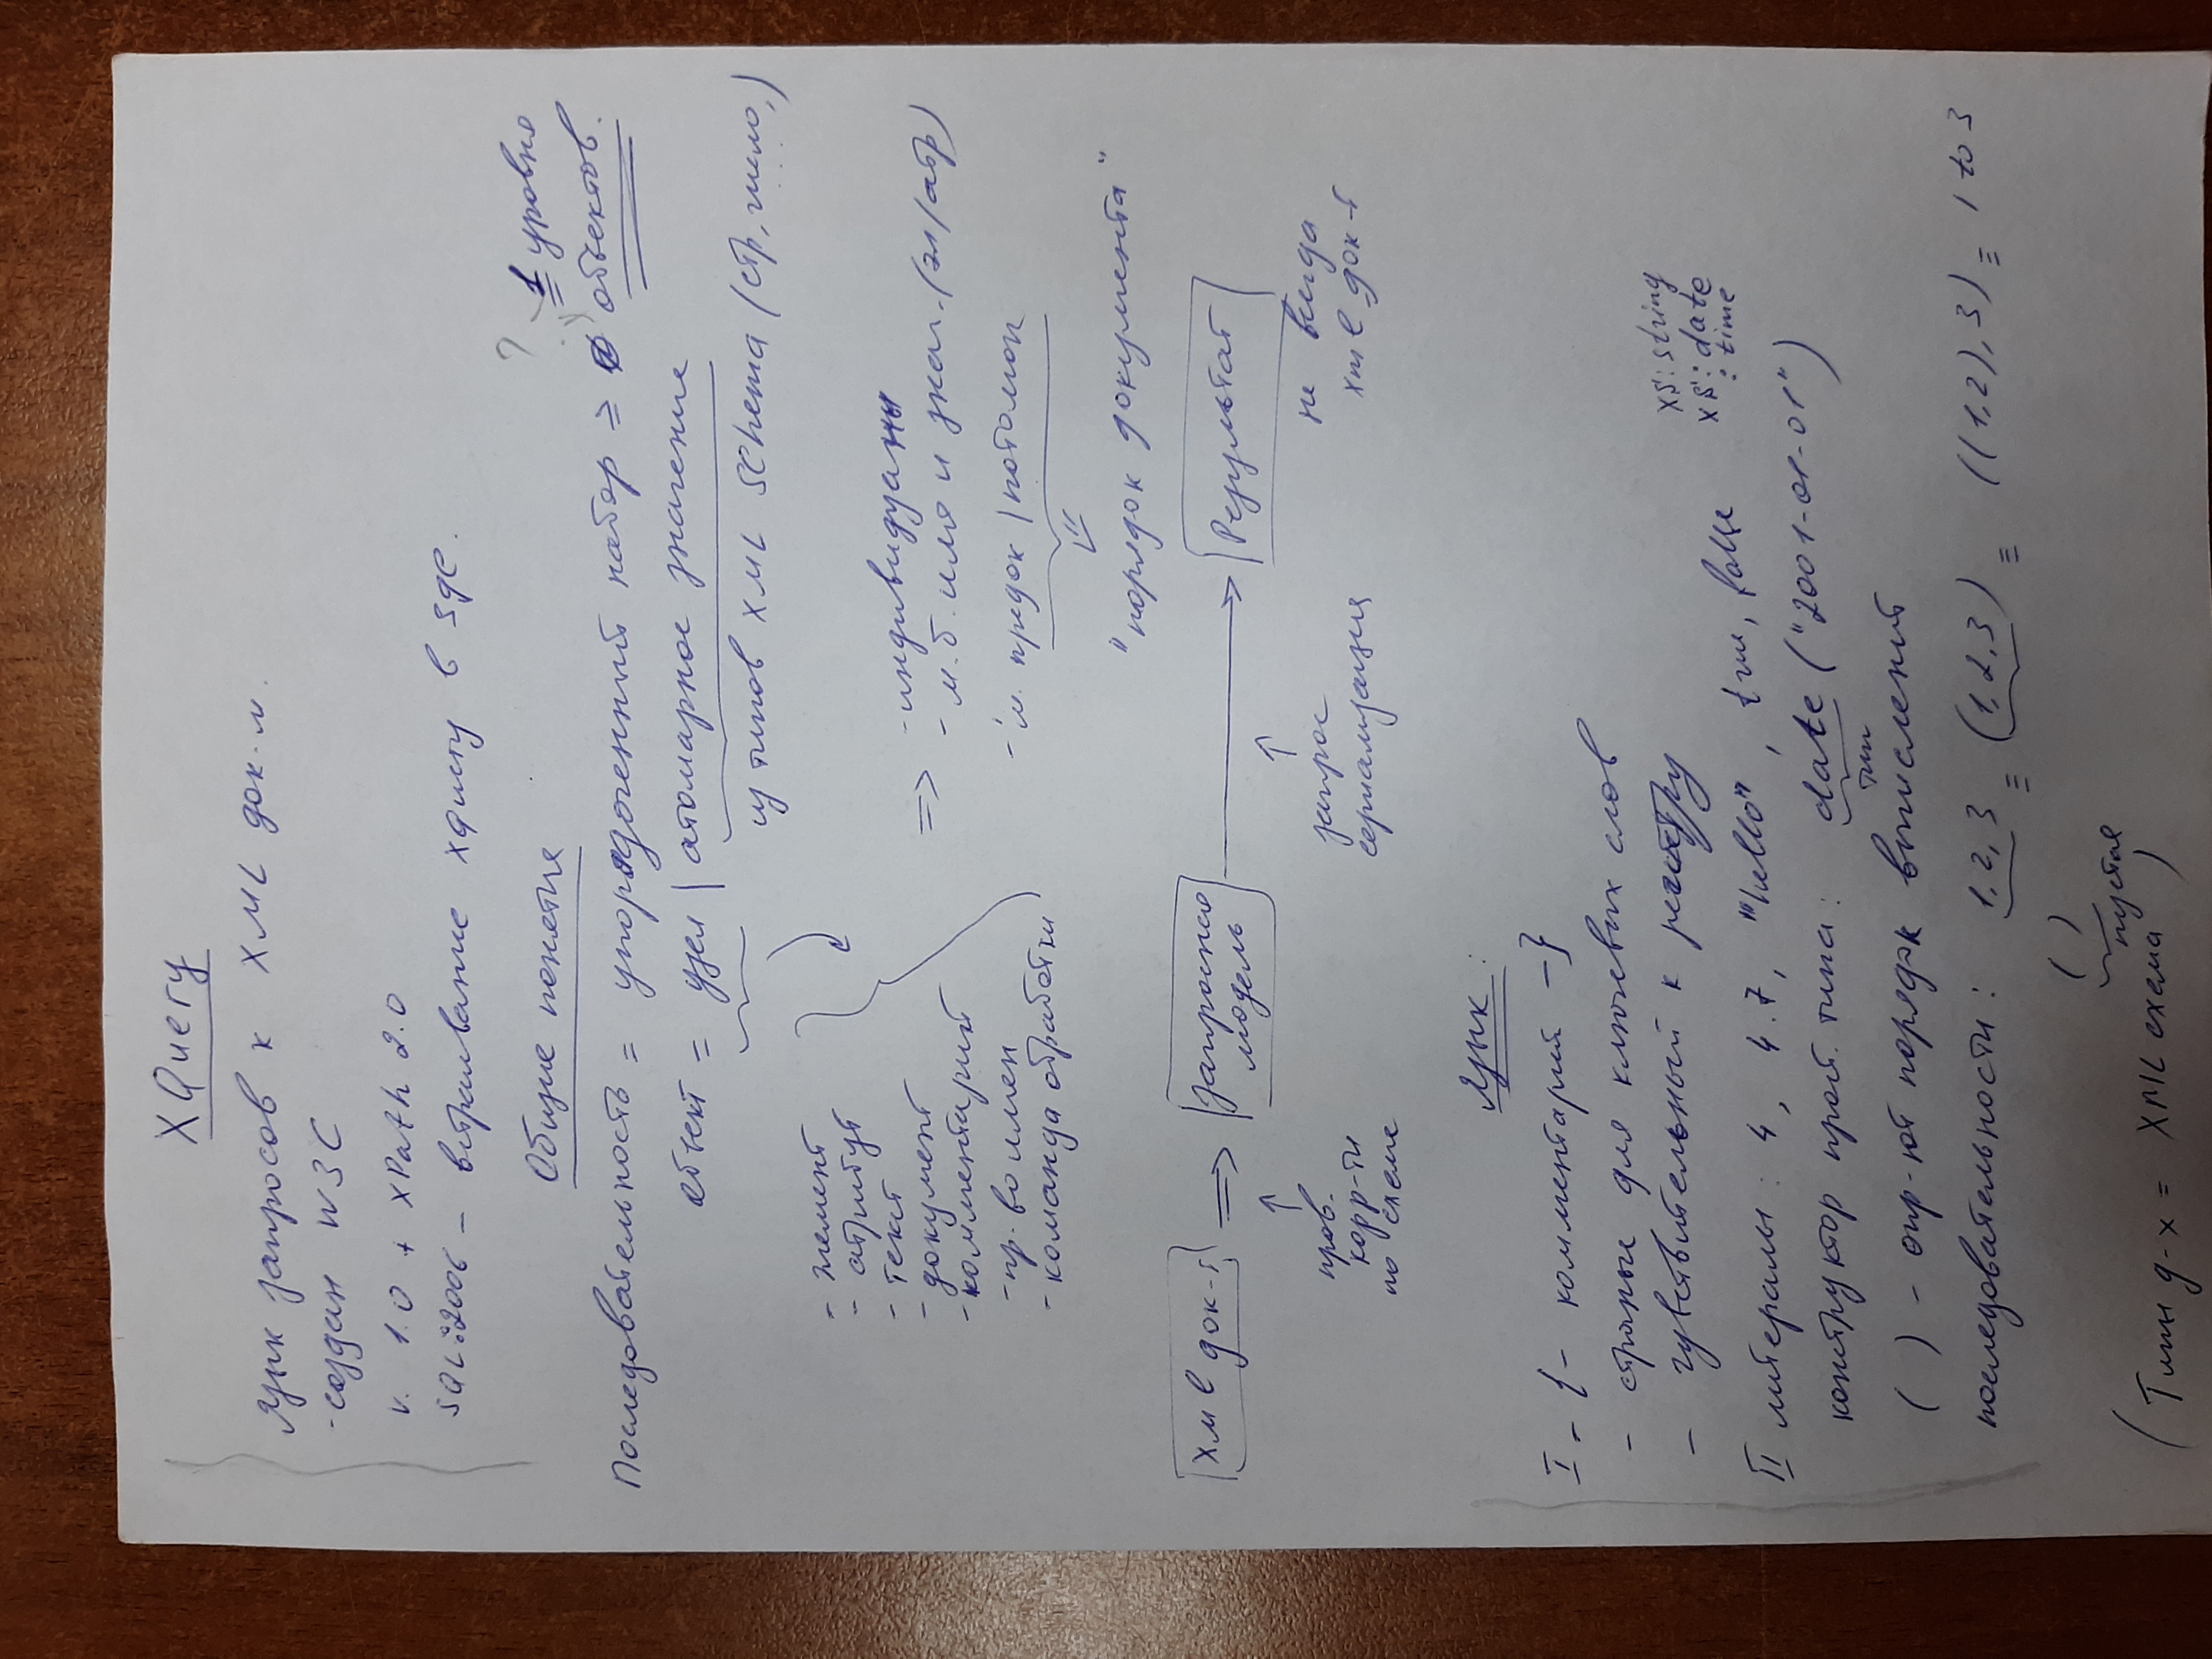 XQuery
Язык запросов к XML док-м.
- создан W3C
v. 1.0 + XPath 2.0
SQL:2006 - встраивание XQuery в
Общие понятия
? 1 уровня
Последовательность = упорядоченный набор ≥ 0 объектов.
Объект = узел | атомарное значение
из типов XML Schema (стр, число, )
- элемент
- атрибут
- текст
- документ
- комментарий
- пр-во имен
- команда обработки
⇒ - индивидуальны
- м.б. имя и знач. (эл/атр)
- м. предок | потомок
"порядок документа"
Xml док-т ⇒ запросная модель → Результат
пров. корр-ти по схеме
запрос
сериализация
не всегда
xml док-т
Язык:
I - {- комментарий -}
- строчные для ключевых слов
- чувствительный к регистру
xs:string
xs:date
:time
II литералы: 4, 4.7, "'hello"', true, false
конструктор прост. типа: date ("2001-01-01")
тип
( ) - опр-ют порядок вычислений
последовательности: 1,2,3 ≡ (1,2,3) ≡ ((1,2),3) ≡ 1 to 3
( )
пустая
(Типы д-х = XML схема)